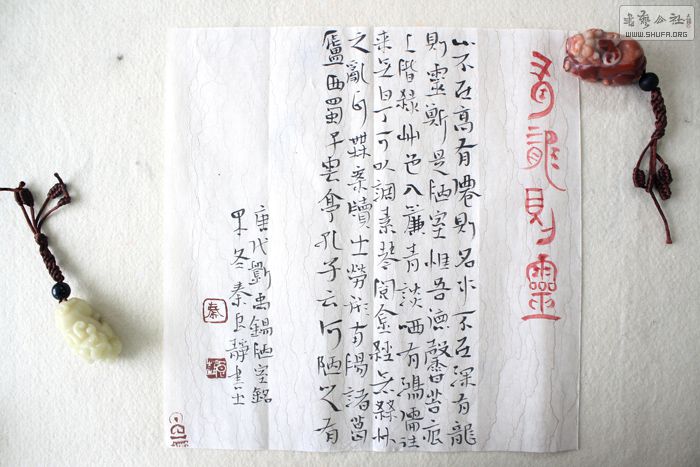 書藝公社
WWW.SHUFA.ORG
有龍則靈
山不在高有僊則名水不在深有龍
則靈斯是陋室惟吾德馨苔痕
上階綠艸色入簾青談咲有鴻儒往
來無白丁可以調素琴閱金經無絲竹
之亂耳無案牘之勞形南陽諸葛
廬西蜀子雲亭孔子云何陋之有
唐代劉禹錫陋室銘
冬秦良靜書
秦